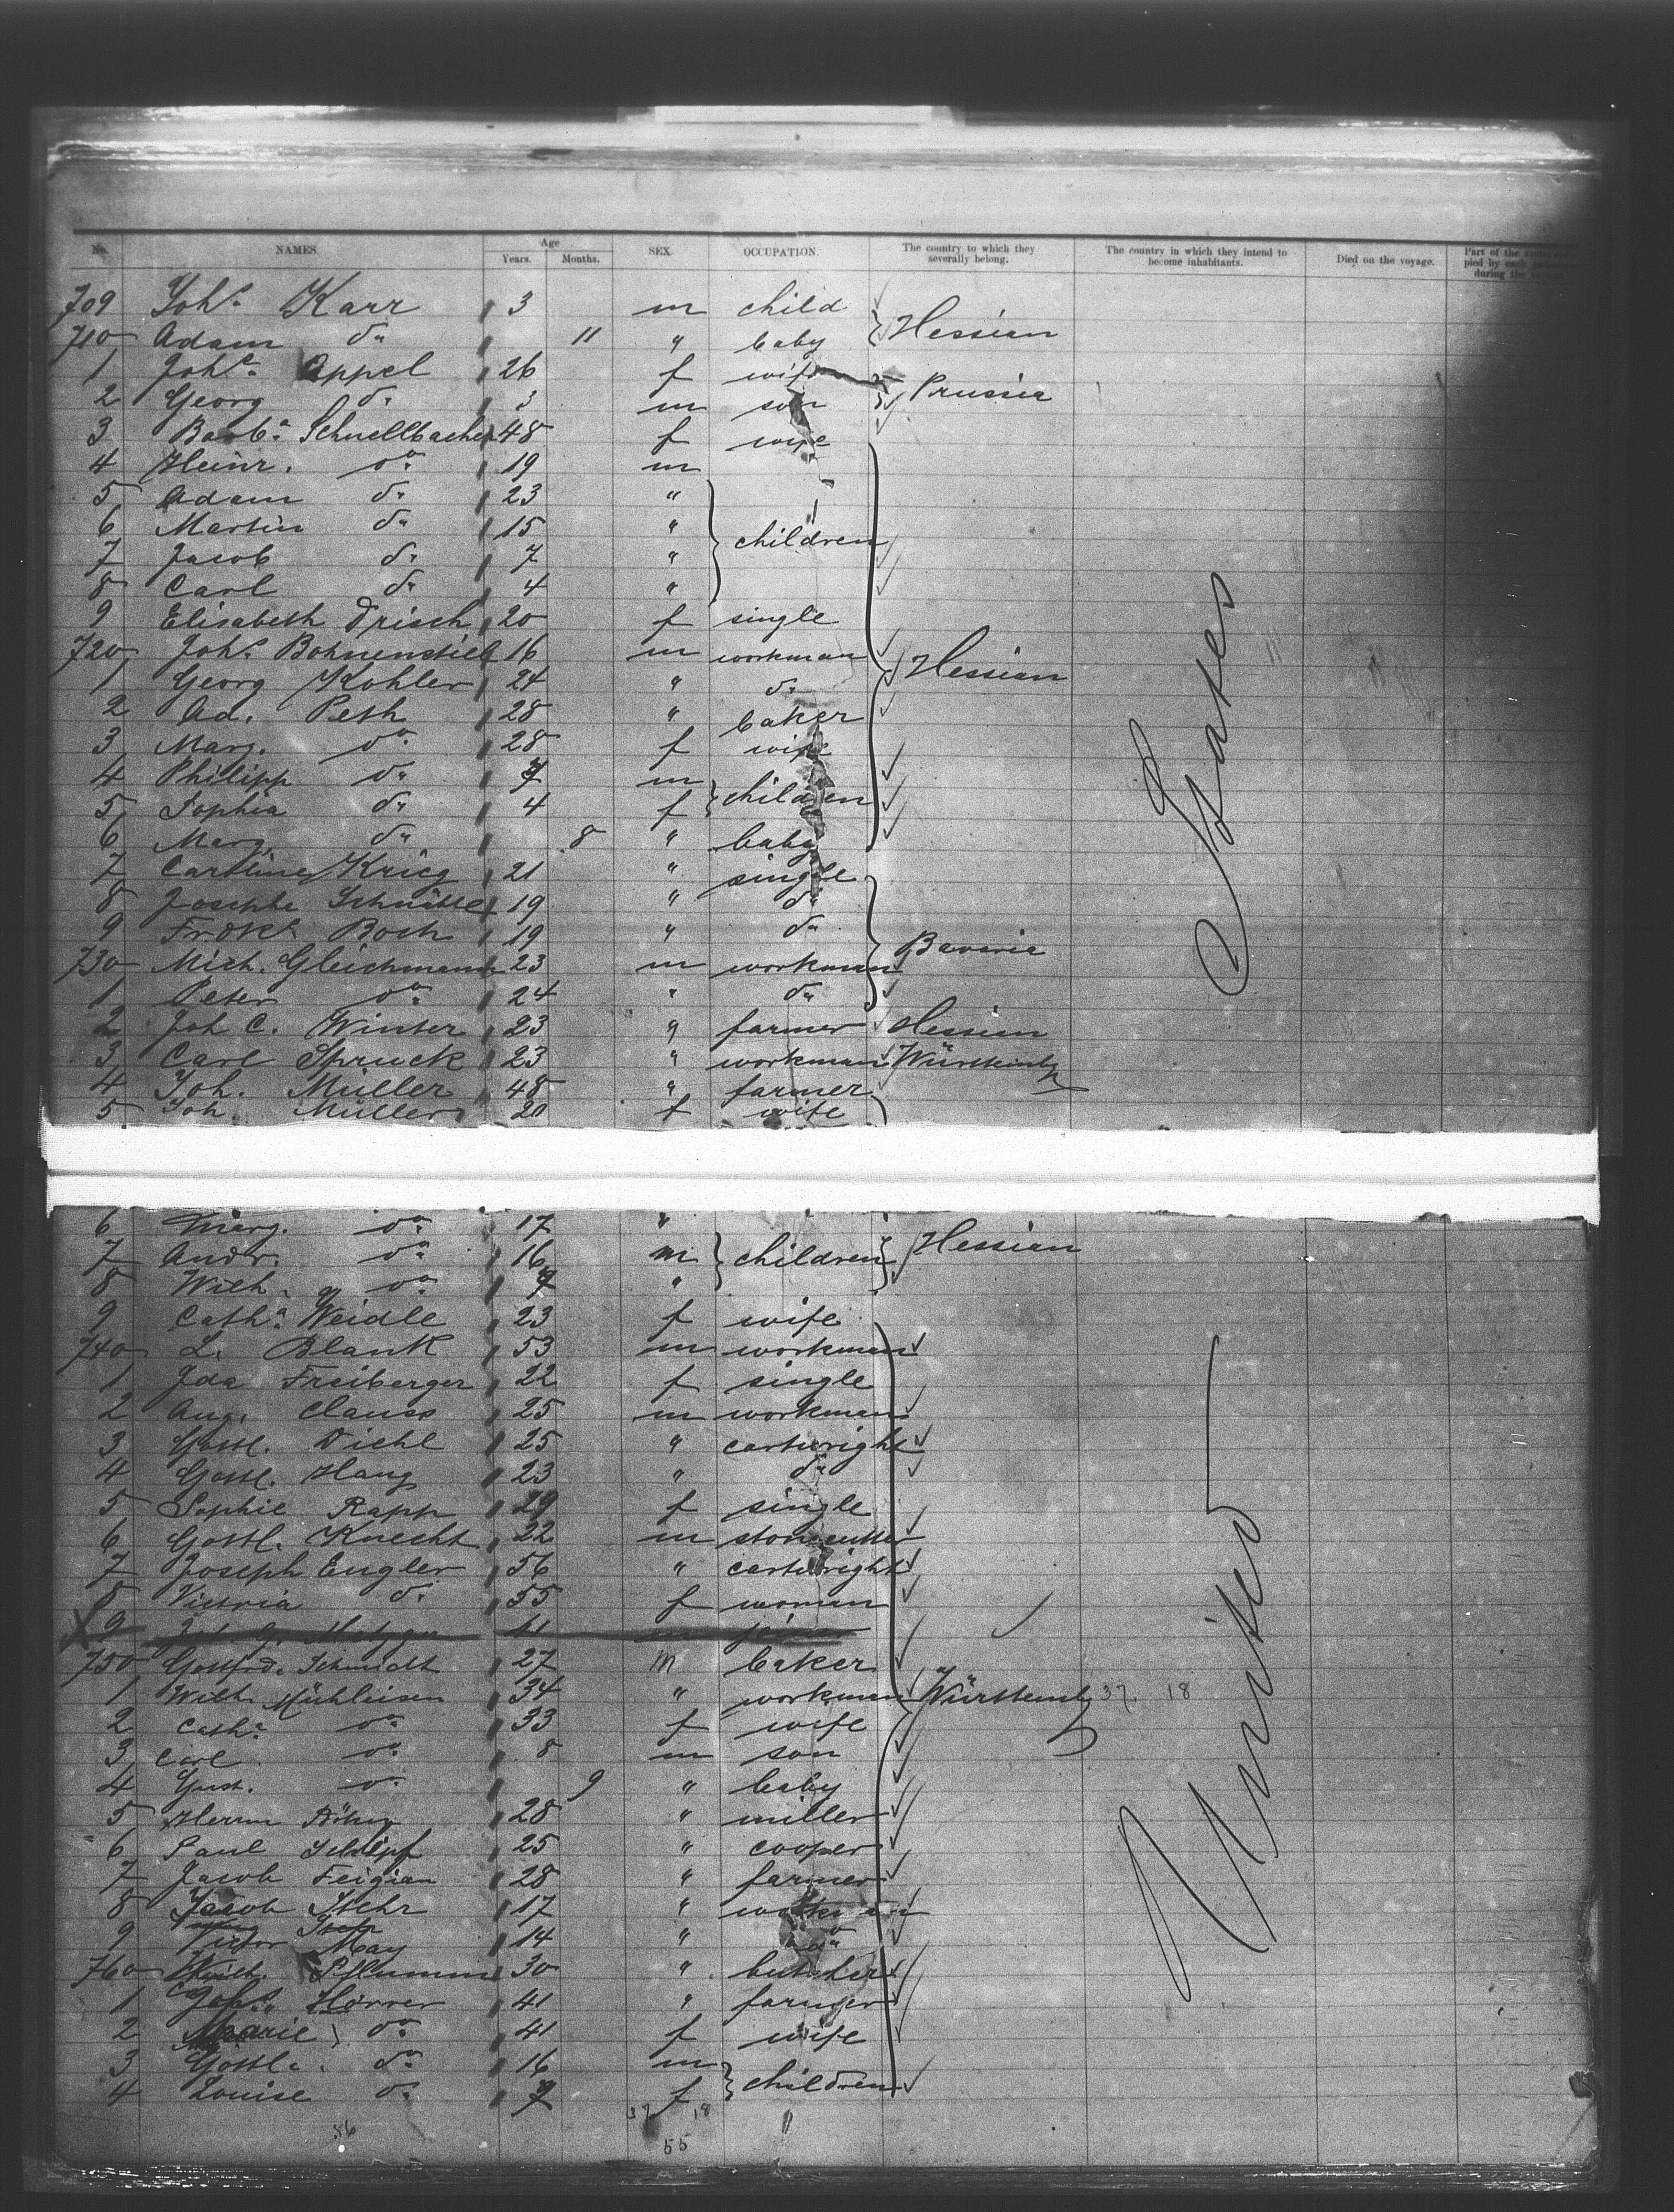 No. NAMES Age Years. Months. SEX. OCCUPATION. The country to which they severally belong. The country in which they intend to become inhabitants. Died on the voyage. Part of the
709 Johs. Karr 3 m child
710 Adam do. 11 " baby Hessian
1 Johe. Appel 26 f wife
2 Georg do. 3 m son Prussia
3 Barba. Schnellbacher 48 f wife
4 Heinr. do. 19 m
5 Adam do. 23 "
6 Martin do. 15 " children
7 Jacob do. 7 "
8 Carl do. 4 "
9 Elisabeth Drisch 20 f single
720 Johs. Bohnenstiel 16 m workman Hessian
1 Georg Kohler 24 " do.
2 Ad. Peth 28 " baker
3 Marg. do. 28 f wife
4 Philipp do. 7 m
5 Sophia do. 4 f children
6 Marg. do. 8 " baby
7 Caroline Krieg 21 " single
8 Josepha 19 " do.
9 Frdke. Boch 19 " do.
730 Mich. Gleichmann 23 m workman Bavaria
1 Peter do. 24 " do.
2 Joh C. Winter 23 " farmer Hessian
3 Carl Spruck 23 " workman Württembg
4 Joh. Müller 48 " farmer
5 Joh. Müller 20 f wife
6 Marg. do. 17 "
7 Andr. do. 16 m children Hessian
8 Wilh. do. 7 "
9 Catha. Weidle 23 f wife
740 L. Blank 53 m workman
1 Ida Freiberger 22 f single
2 Aug. Clauss 25 m workman
3 Gottl. Diehl 25 " cartwright
4 Gottl. Haug 23 " do.
5 Sophie Rapp 29 f single
6 Gottl. Knecht 22 m stonecutter
7 Joseph Engler 56 " cartwright
8 Victoria do. 55 f woman
X 9 Metzger 41 m
750 Gottfrd. Schmidt 27 m baker
1 Wilh. Mühleisen 34 " workman Württembg 37. 18
2 Catha. do. 33 f wife
3 Carl do. 8 m son
4 Gust. do. 9 " baby
5 Herrm 28 " miller
6 Paul Schöpf 25 " cooper
7 Jacob Feigian 28 " farmer
8 Jacob Stehr 17 " workman
9 Victor May 14 " do.
760 Wilh. Pflumm 30 " butcher
1 Johs. Horrer 41 " farmer
2 Marie do. 41 f wife
3 Gottl. do. 16 m
4 Louise do. 7 f children
37 18
56 55
United States